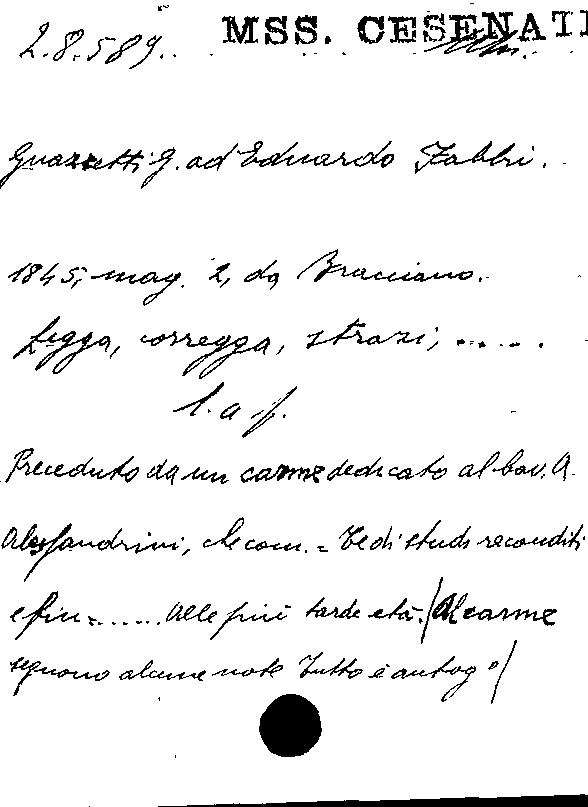 2.8.589. MSS. CESENATI
Guazzetti G. ad Eduardo Fabbri.
1845, mag. 2, da Bracciano.
Legga, corregga, strazi, .....
l. a f.
Preceduto da un carme dedicato al Cav. A.
Alessandrini, che com. = Te di studi reconditi
e fin = ...... Alle più tarde età. (Al carme
seguono alcune note Tutto è autog°)